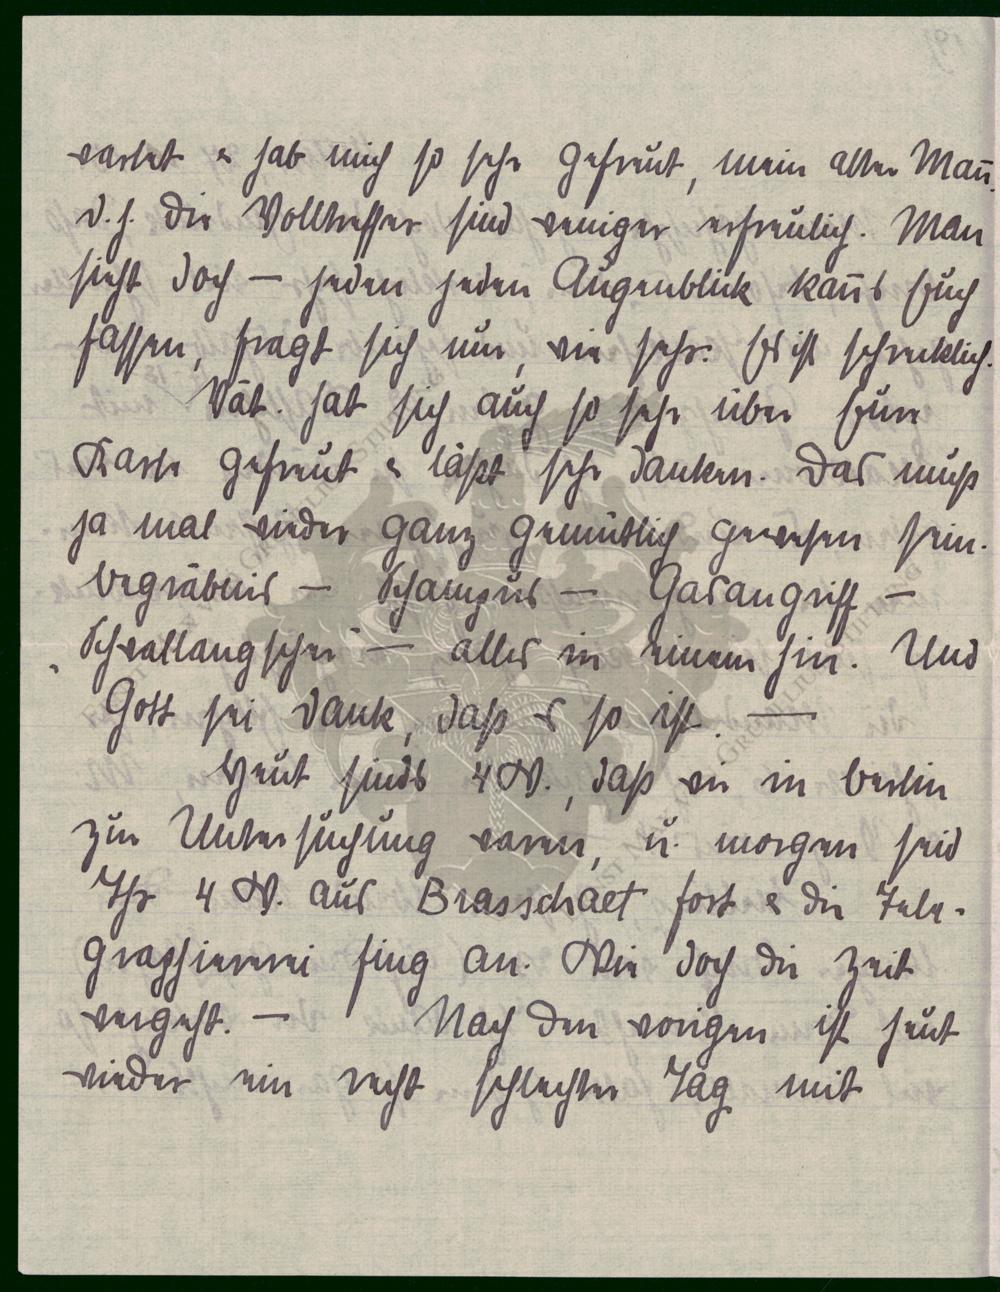 wartet & hab mich so sehr gefreut, mein alter Mañ.
d. h. die Volltreffer sind weniger erfreulich. Man
sieht doch — jeden jeden Augenblick kañs Euch
fassen, fragt sich nur, wie sehr. Es ist schrecklich.
Vat. hat sich auch so sehr über Eure
Karte gefreut & läßt sehr danken. Das muß
ja mal wieder ganz gemütlich gewesen sein.
Begräbnis — Schampus — Gasangriff —
alles in einem hin. Und
Gott sei Dank, daß es so ist. —
Heut sinds 4 W., daß wir in Berlin
zur Untersuchung waren, u. morgen seid
Ihr 4 W. aus Brasschaet fort & die Tele-
graphiererei fing an. Wie doch die Zeit
vergeht. — Nach den vorigen ist heut
wieder ein recht schlechter Tag mit